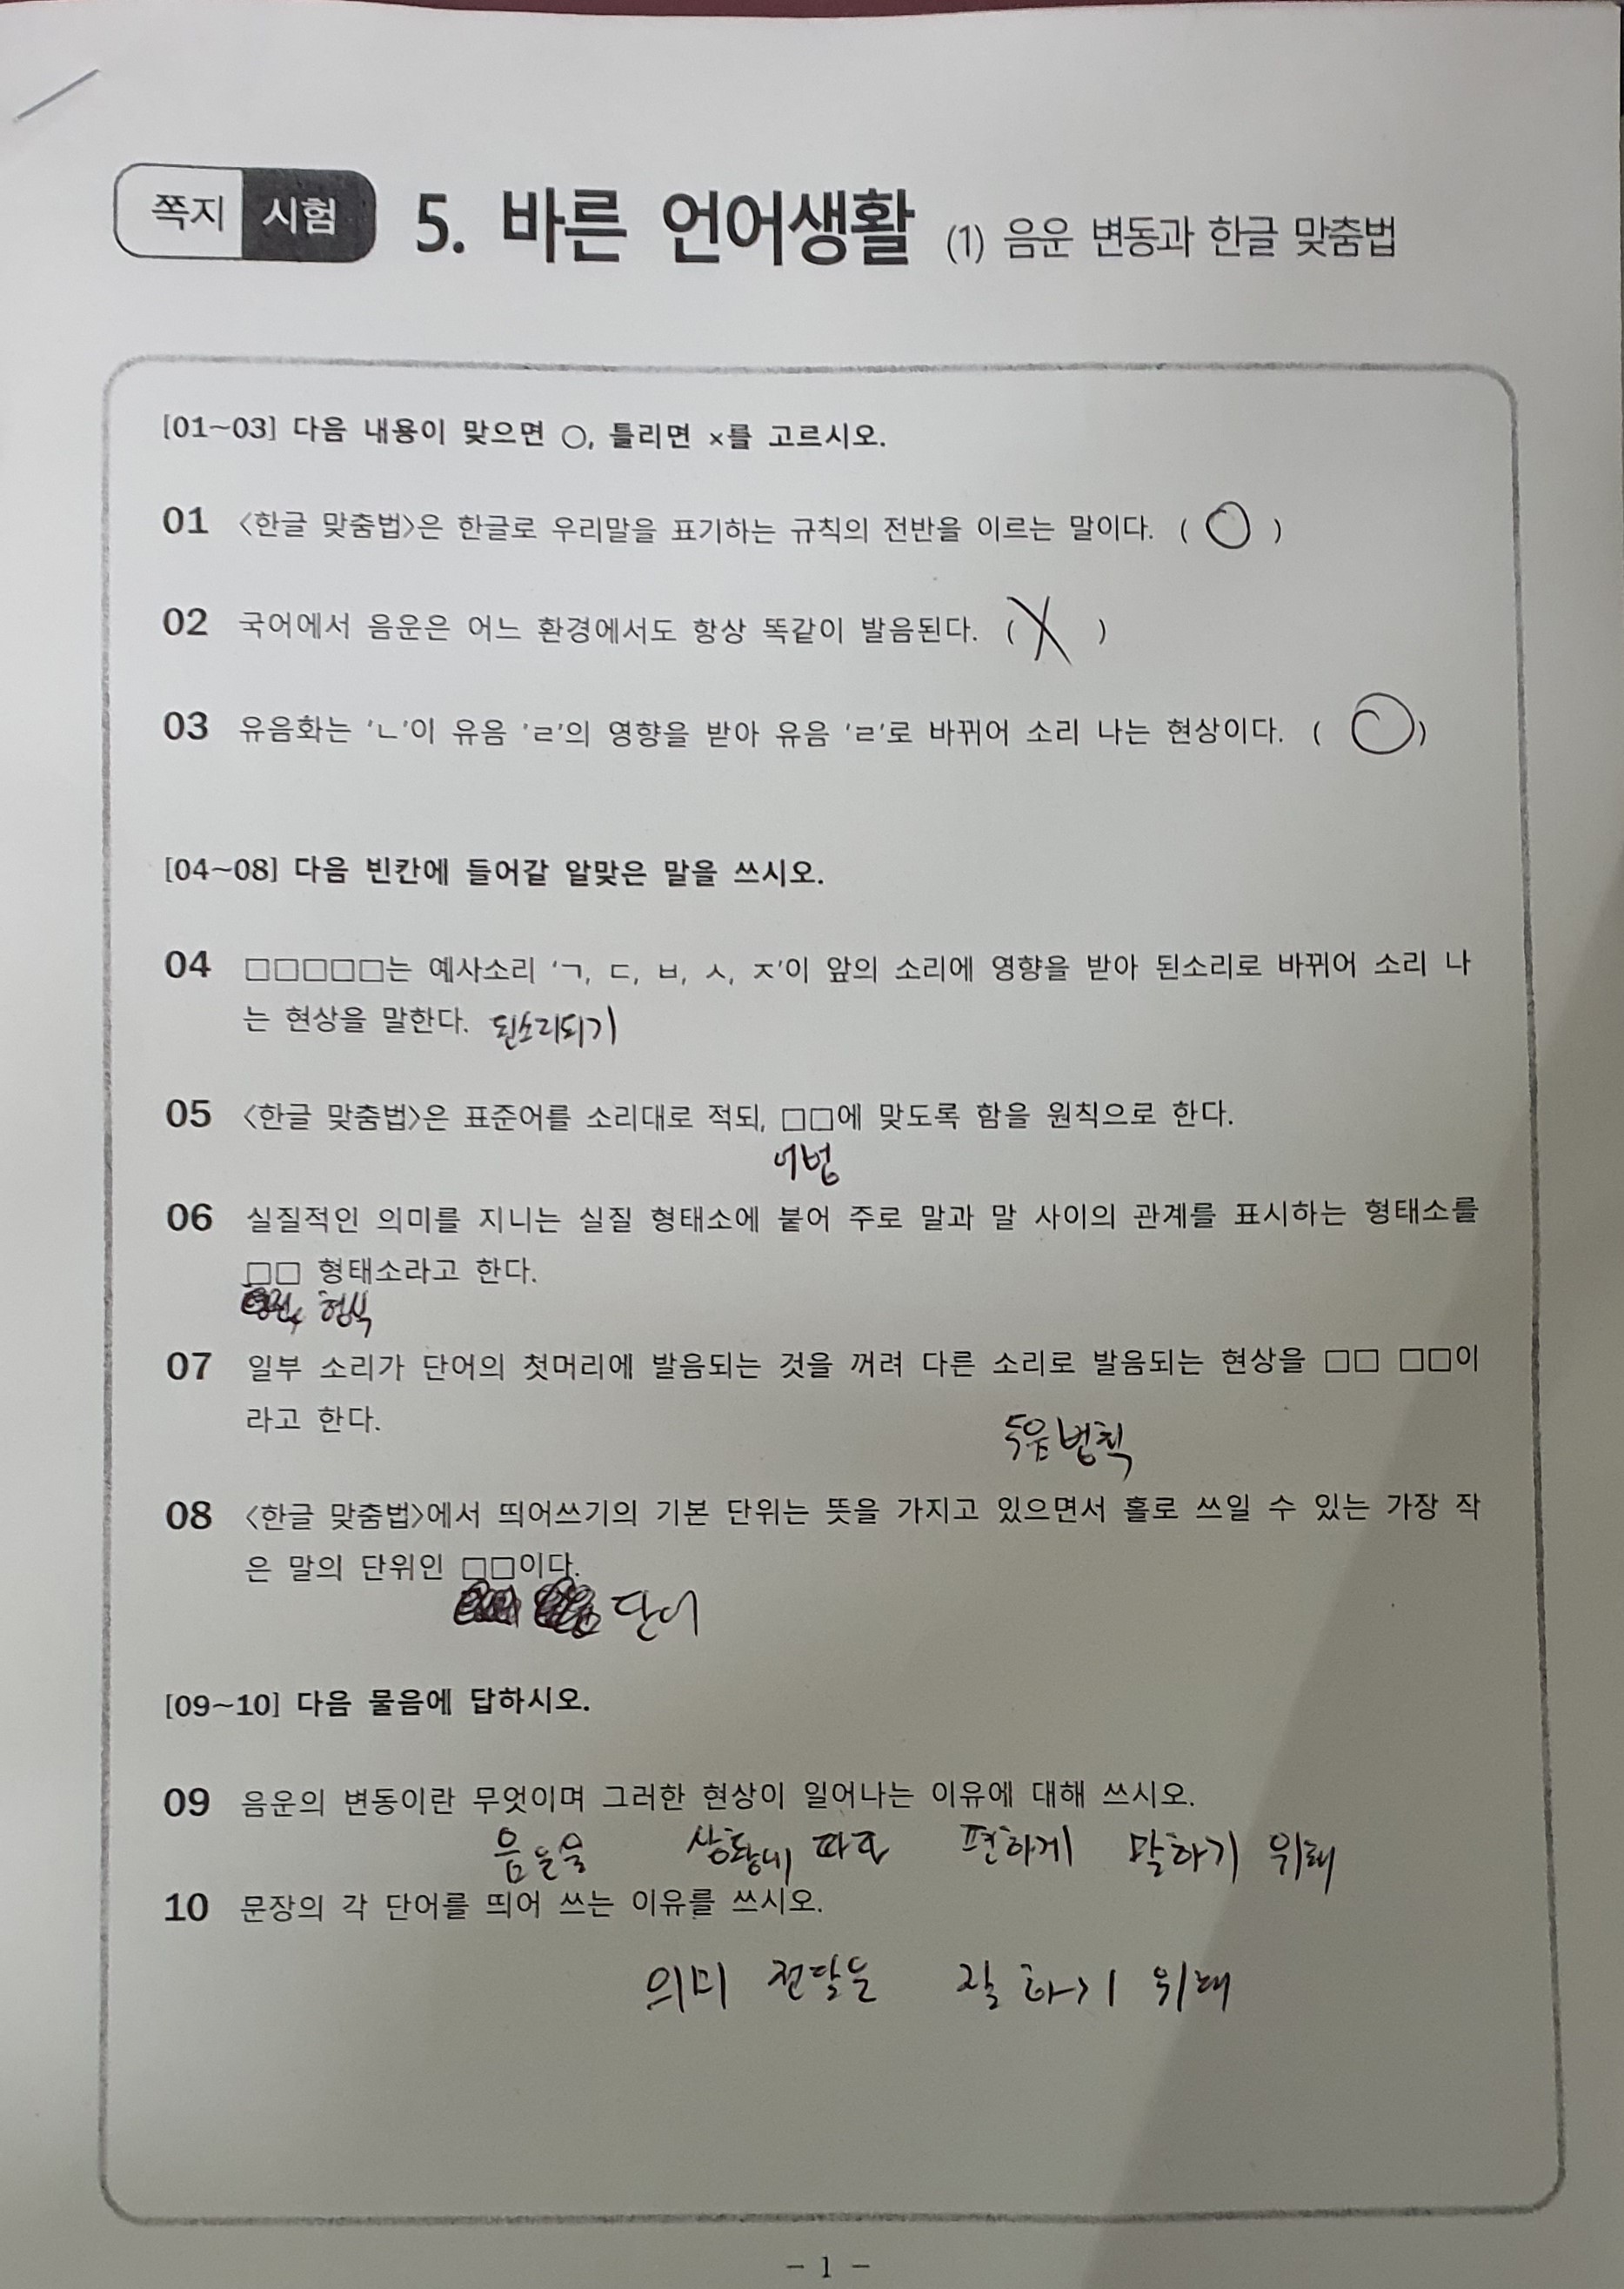 쪽지 시험 5. 바른 언어생활 (1) 음운 변동과 한글 맞춤법
[01~03] 다음 내용이 맞으면 ○, 틀리면 ×를 고르시오.
01 〈한글 맞춤법〉은 한글로 우리말을 표기하는 규칙의 전반을 이르는 말이다. ( ○ )
02 국어에서 음운은 어느 환경에서도 항상 똑같이 발음된다. ( X )
03 유음화는 'ㄴ'이 유음 'ㄹ'의 영향을 받아 유음 'ㄹ'로 바뀌어 소리 나는 현상이다. ( ○ )
[04~08] 다음 빈칸에 들어갈 알맞은 말을 쓰시오.
04 □□□□□는 예사소리 'ㄱ, ㄷ, ㅂ, ㅅ, ㅈ'이 앞의 소리에 영향을 받아 된소리로 바뀌어 소리 나
는 현상을 말한다. 된소리되기
05 〈한글 맞춤법〉은 표준어를 소리대로 적되, □□에 맞도록 함을 원칙으로 한다.
어법
06 실질적인 의미를 지니는 실질 형태소에 붙어 주로 말과 말 사이의 관계를 표시하는 형태소를
□□ 형태소라고 한다.
형식
07 일부 소리가 단어의 첫머리에 발음되는 것을 꺼려 다른 소리로 발음되는 현상을 □□ □□이
라고 한다.
법칙
08 〈한글 맞춤법〉에서 띄어쓰기의 기본 단위는 뜻을 가지고 있으면서 홀로 쓰일 수 있는 가장 작
은 말의 단위인 □□이다.
단어
[09~10] 다음 물음에 답하시오.
09 음운의 변동이란 무엇이며 그러한 현상이 일어나는 이유에 대해 쓰시오.
상황에 따라 편하게 말하기 위해
10 문장의 각 단어를 띄어 쓰는 이유를 쓰시오.
의미 전달을 잘 하기 위해
- 1 -